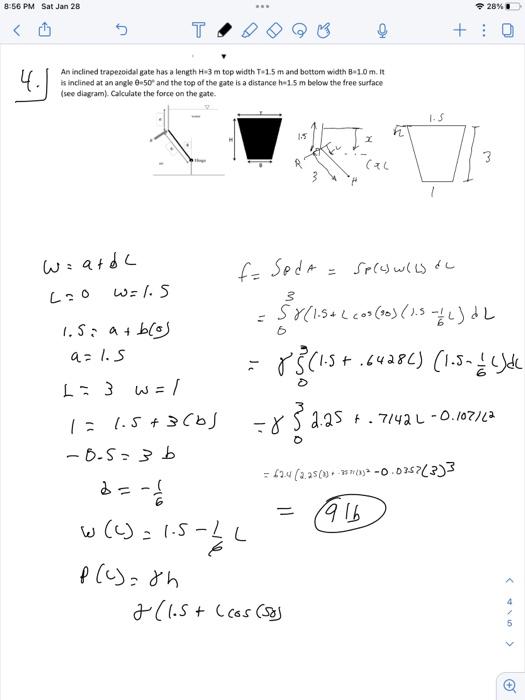 8:56 PM Sat Jan 28
28%
4.
An inclined trapezoidal gate has a length H=3 m top width T=1.5 m and bottom width B=1.0 m. It
is inclined at an angle θ=50° and the top of the gate is a distance h=1.5 m below the free surface
(see diagram). Calculate the force on the gate.
T
H
B
Hinge
1.5
x
R
3
h
1.5
3
1
W = a + bL
L = 0 W = 1.5
1.5 = a + b(0)
a = 1.5
L = 3 W = 1
1 = 1.5 + 3(b)
-0.5 = 3 b
b = -1/6
W(L) = 1.5 - 1/6 L
P(L) = γh
γ(1.5 + L cos(50)
f = ∫P dA = ∫P(L) W(L) dL
= ∫₀³ γ(1.5 + L cos(50) (1.5 - 1/6 L) dL
= γ ∫₀³ (1.5 + .6428L) (1.5 - 1/6 L) dL
= γ ∫₀³ 2.25 + .7142L - 0.1071L²
= 62.4 (2.25(3) + .3571(3)² - 0.0357(3)³
= 91b
4
/
5